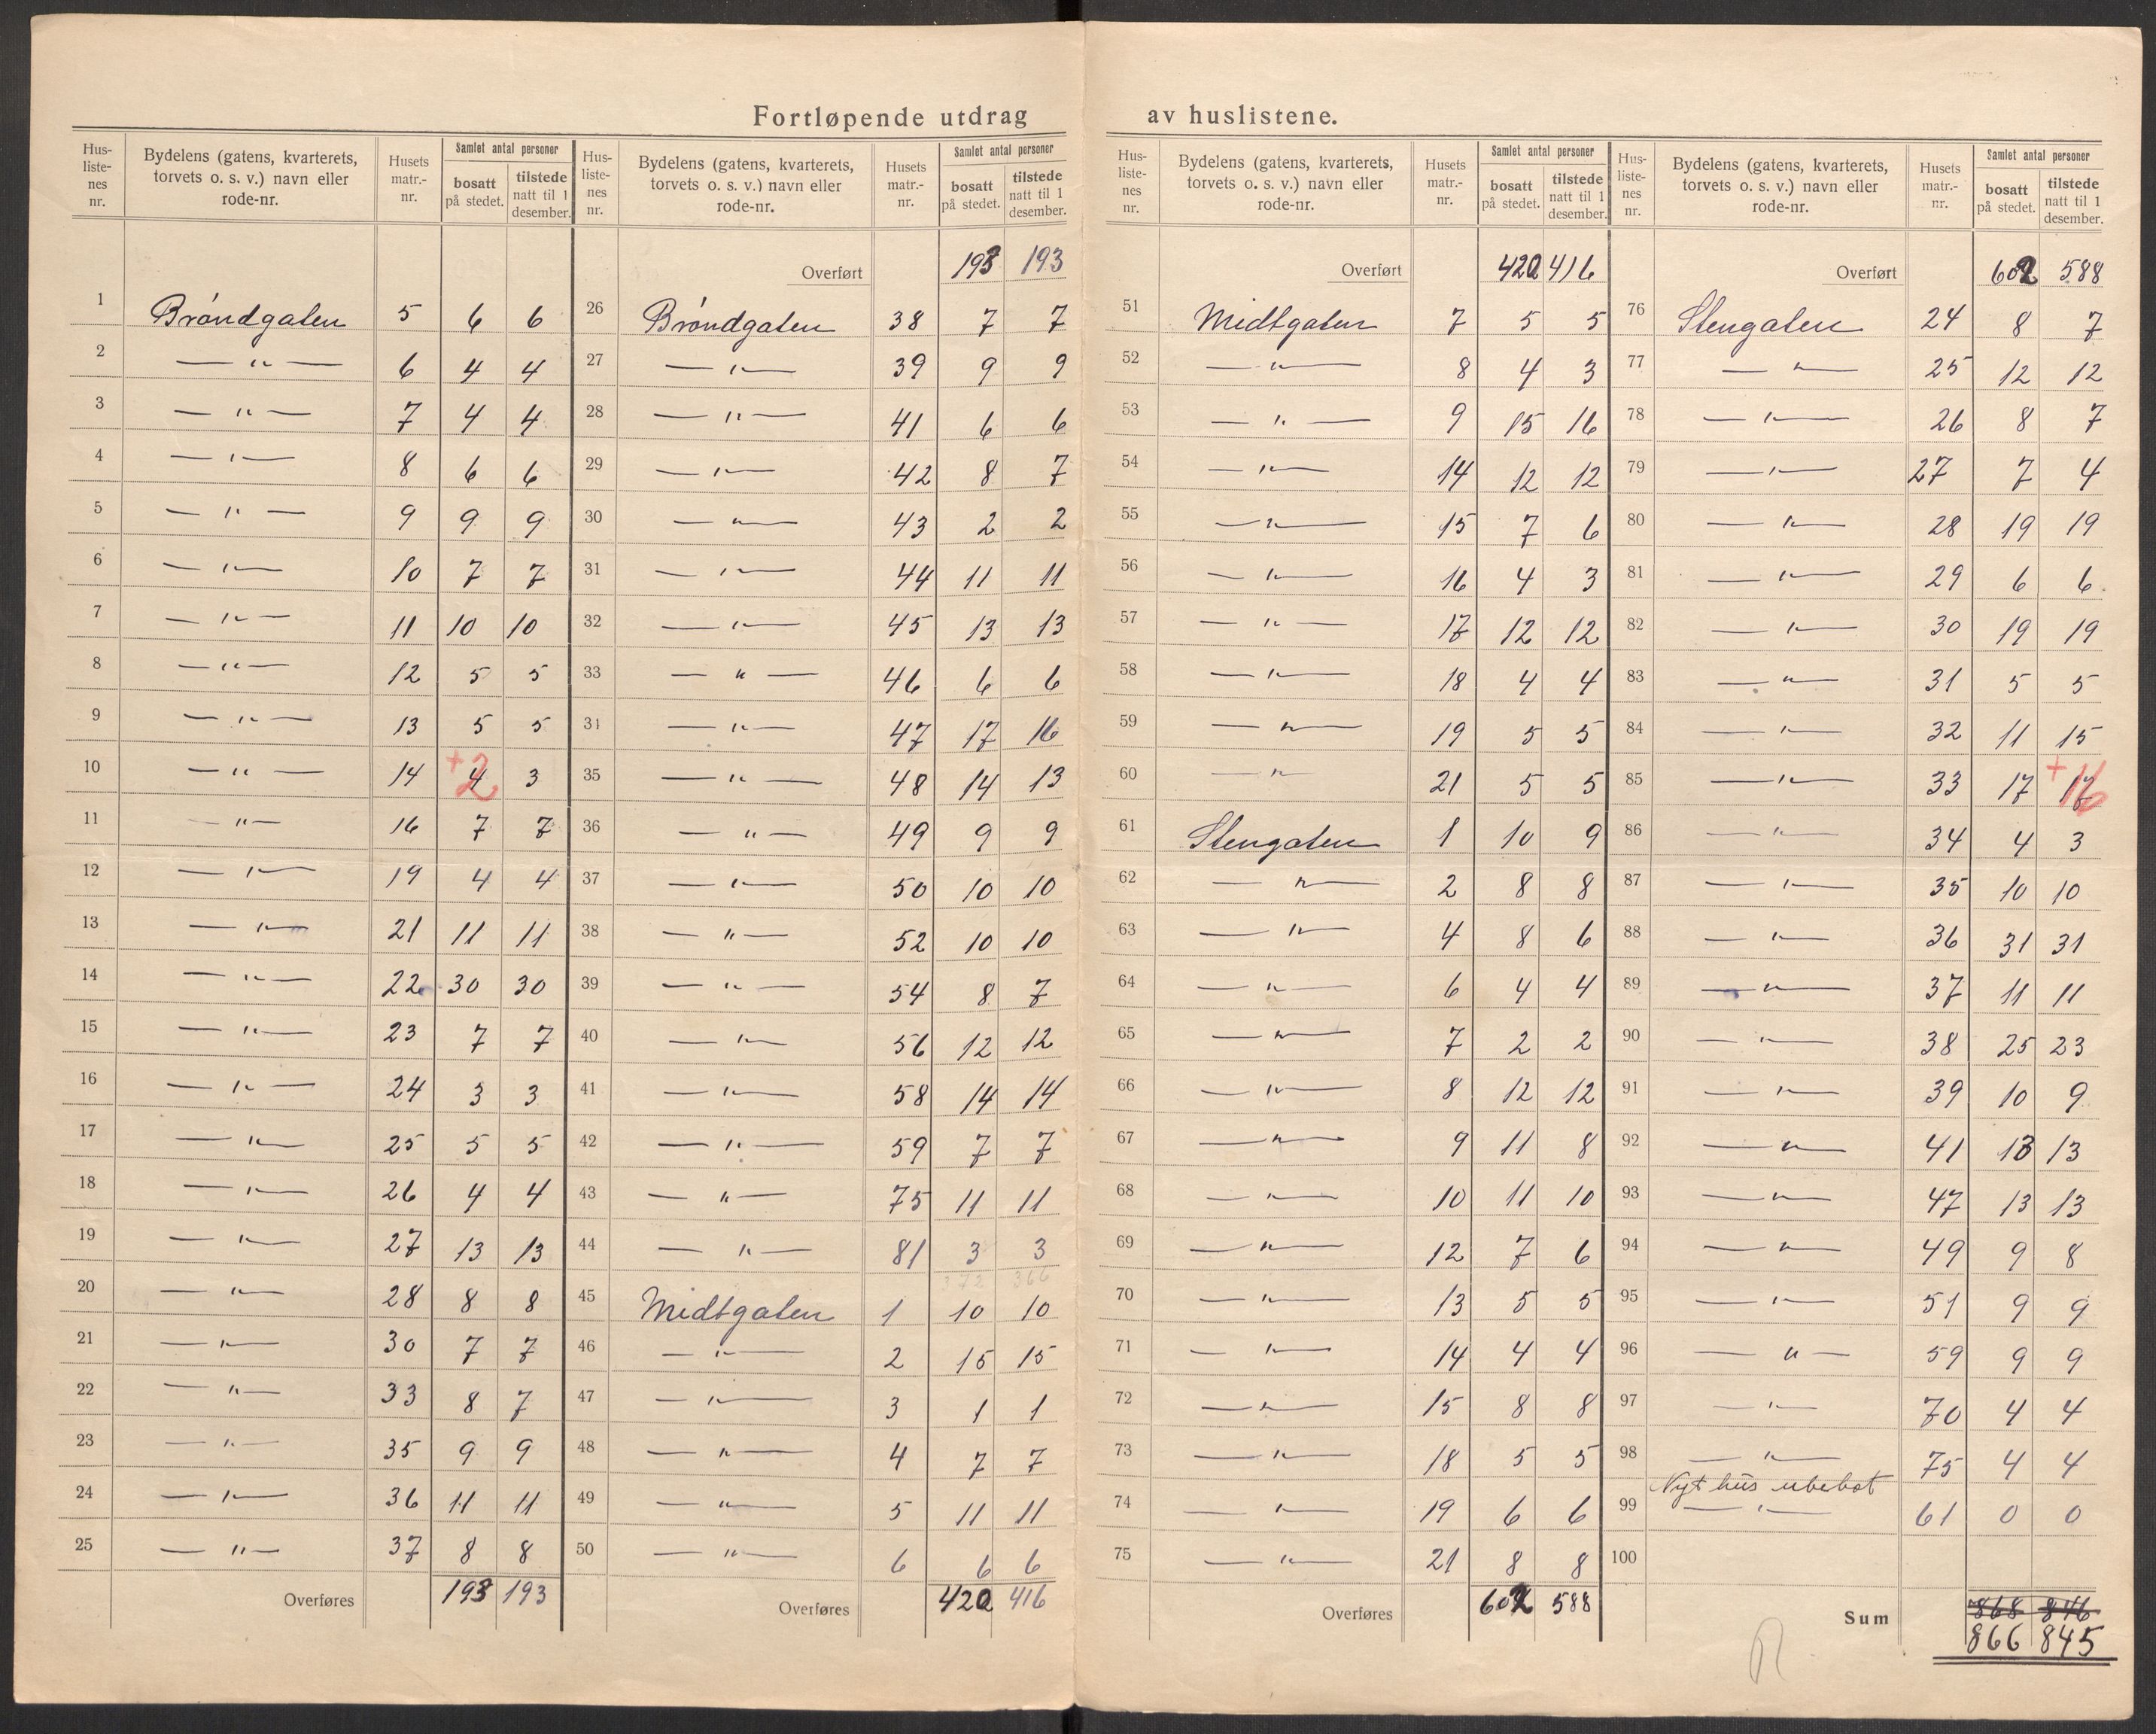 Fortløpende utdrag av huslistene.
Hus-listenes nr. | Bydelens (gatens, kvarterets, torvets o. s. v.) navn eller rode-nr. | Husets matr.-nr. | Samlet antal personer bosatt på stedet. | tilstede natt til 1 desember.
1 Brøndgaten 5 6 6
2 — " — 6 4 4
3 — " — 7 4 4
4 — " — 8 6 6
5 — " — 9 9 9
6 — " — 10 7 7
7 — " — 11 10 10
8 — " — 12 5 5
9 — " — 13 5 5
10 — " — 14 4 +2 3
11 — " — 16 7 7
12 — " — 19 4 4
13 — " — 21 11 11
14 — " — 22 30 30
15 — " — 23 7 7
16 — " — 24 3 3
17 — " — 25 5 5
18 — " — 26 4 4
19 — " — 27 13 13
20 — " — 28 8 8
21 — " — 30 7 7
22 — " — 33 8 7
23 — " — 35 9 9
24 — " — 36 11 11
25 — " — 37 8 8
Overføres 193 193
Hus-listenes nr. | Bydelens (gatens, kvarterets, torvets o. s. v.) navn eller rode-nr. | Husets matr.-nr. | Samlet antal personer bosatt på stedet. | tilstede natt til 1 desember.
Overført 193 193
26 Brøndgaten 38 7 7
27 — " — 39 9 9
28 — " — 41 6 6
29 — " — 42 8 7
30 — " — 43 2 2
31 — " — 44 11 11
32 — " — 45 13 13
33 — " — 46 6 6
34 — " — 47 17 16
35 — " — 48 14 13
36 — " — 49 9 9
37 — " — 50 10 10
38 — " — 52 10 10
39 — " — 54 8 7
40 — " — 56 12 12
41 — " — 58 14 14
42 — " — 59 7 7
43 — " — 75 11 11
44 — " — 81 3 3
372 366
45 Midtgaten 1 10 10
46 — " — 2 15 15
47 — " — 3 1 1
48 — " — 4 7 7
49 — " — 5 11 11
50 — " — 6 6 6
Overføres 420 416
Hus-listenes nr. | Bydelens (gatens, kvarterets, torvets o. s. v.) navn eller rode-nr. | Husets matr.-nr. | Samlet antal personer bosatt på stedet. | tilstede natt til 1 desember.
Overført 420 416
51 Midtgaten 7 5 5
52 — " — 8 4 3
53 — " — 9 15 16
54 — " — 14 12 12
55 — " — 15 7 6
56 — " — 16 4 3
57 — " — 17 12 12
58 — " — 18 4 4
59 — " — 19 5 5
60 — " — 21 5 5
61 Stengaten 1 10 9
62 — " — 2 8 8
63 — " — 4 8 6
64 — " — 6 4 4
65 — " — 7 2 2
66 — " — 8 12 12
67 — " — 9 11 8
68 — " — 10 11 10
69 — " — 12 7 6
70 — " — 13 5 5
71 — " — 14 4 4
72 — " — 15 8 8
73 — " — 18 5 5
74 — " — 19 6 6
75 — " — 21 8 8
Overføres 602 588
Hus-listenes nr. | Bydelens (gatens, kvarterets, torvets o. s. v.) navn eller rode-nr. | Husets matr.-nr. | Samlet antal personer bosatt på stedet. | tilstede natt til 1 desember.
Overført 602 588
76 Stengaten 24 8 7
77 — " — 25 12 12
78 — " — 26 8 7
79 — " — 27 7 4
80 — " — 28 19 19
81 — " — 29 6 6
82 — " — 30 19 19
83 — " — 31 5 5
84 — " — 32 11 15
85 — " — 33 17 17 +16
86 — " — 34 4 3
87 — " — 35 10 10
88 — " — 36 31 31
89 — " — 37 11 11
90 — " — 38 25 23
91 — " — 39 10 9
92 — " — 41 13 13
93 — " — 47 13 13
94 — " — 49 9 8
95 — " — 51 9 9
96 — " — 59 9 9
97 — " — 70 4 4
98 — " — 75 4 4
Nyt hus ubebot
99 — " — 61 0 0
100
868 846
Sum 866 845